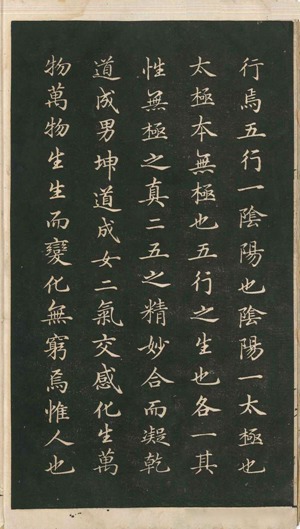 行焉五行一陰陽也陰陽一太極也
太極本無極也五行之生也各一其
性無極之真二五之精妙合而凝乾
道成男坤道成女二氣交感化生萬
物萬物生生而變化無窮焉惟人也